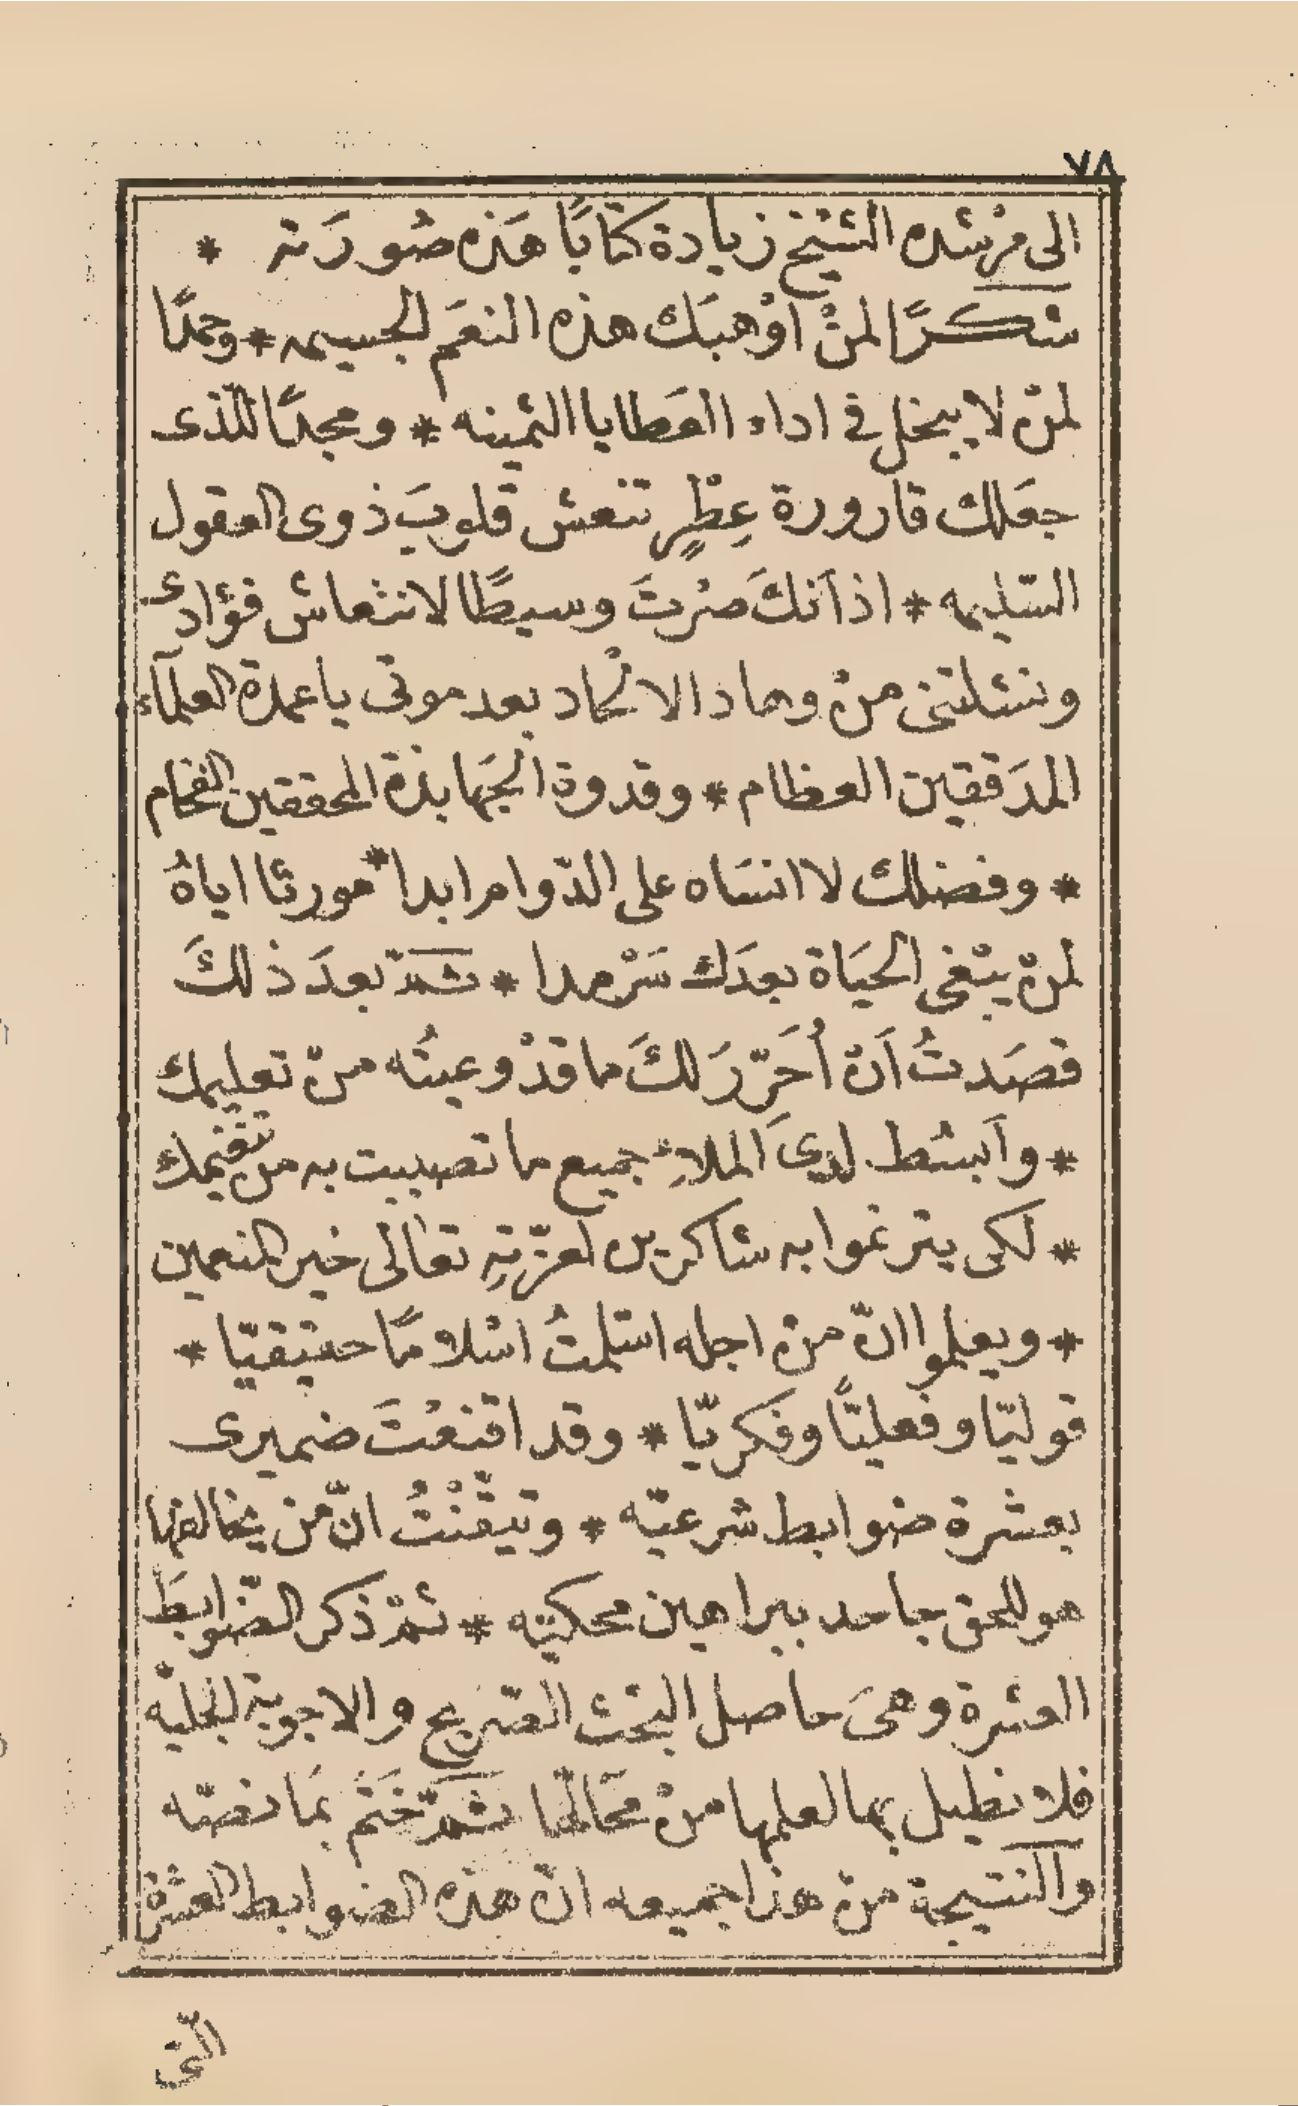 ٧٨
الى مرْشده الشيْخ زيادة كتابًا هَذه صُورَته *
شكرًا لمنْ اوْهبَك هذه النعَم الجسيمه * وحمدًا
لمنْ لا يبخل في اداء العَطايا الثمينه * ومجدًا للّذى
جعَلك قارورة عِطْرٍ تنعش قلوبَ ذوى العقول
السّليمه * اذ اَنكَ صرْتَ وسيطًا لانتعاش فؤادى
ونشلتنى منْ وهاد الالْحاد بعد موتى يا عمدة العلمآء
المدَققين العظام * وقدوة الجَهابذة المحققين الفخام
* وفضلك لا انسَاه على الدّوام ابدا * مورثا اياهُ
لمنْ يبْغى الحيَاة بعدَك سَرْمدا * ثمّ بعدَ ذلكَ
قصَدتُ اَنْ اُحَرّرَ لكَ ما قدْ وعيتُه منْ تعليمك
* واَبسُط لدىَ الملاءِ جميع ما تصببت به من تفقيمك
* لكى يترنموا به شاكرين لعزّتهِ تعالى خير المنعمين
* ويعلموا انّ منْ اجله اسْلمتُ اسْلامًا حقيقيّا *
قوليّا وفعليّاً وفكريّا * وقد اقنعْتَ ضميرى
بعشرة ضوابط شرعيّه * وتيقّنْتُ انّ من يخالفها
هو للحق جاحد ببراهين محكيّه * ثمّ ذكر الضّوابطَ
العشرة وهىَ حاصل البحْث الصّريح والاجوبة الجليّه
فلا نطيل بها لعلمها منْ مَحَالّها ثمّ خَتَم بمَا نصّه
والنتيجة منْ هذا جميعه انّ هذه الضوابط العشرة
الّتى